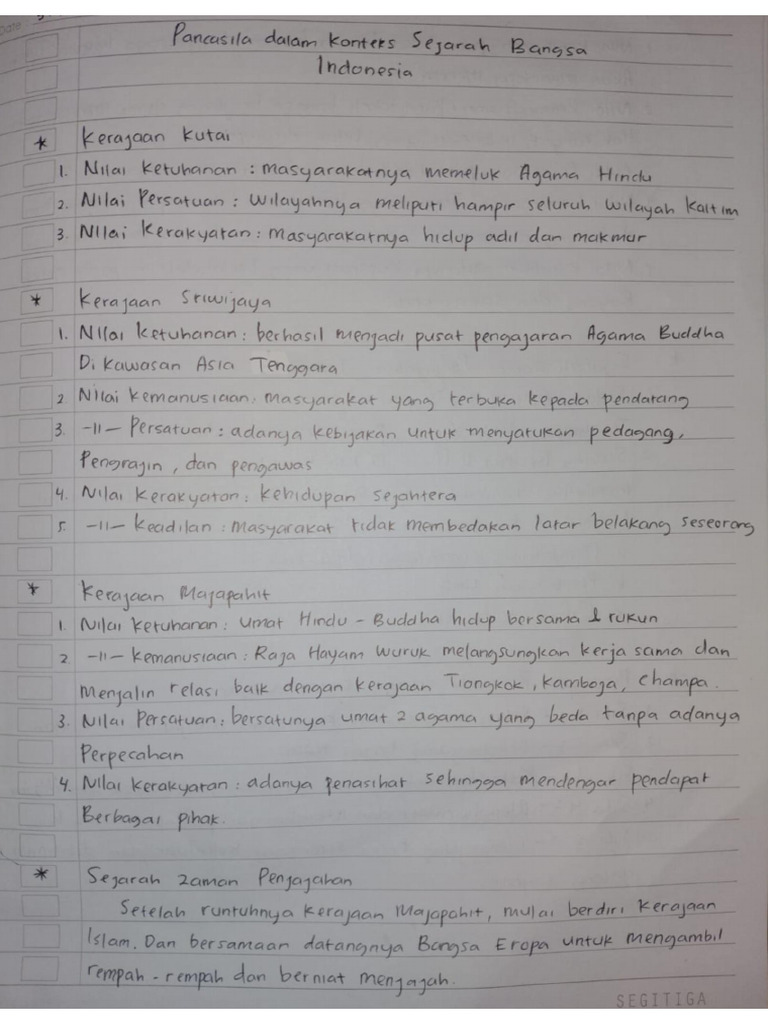 Date
Pancasila dalam konteks Sejarah Bangsa
Indonesia
* Kerajaan Kutai
1. Nilai Ketuhanan : masyarakatnya memeluk Agama Hindu
2. Nilai Persatuan : Wilayahnya meliputi hampir seluruh wilayah kaltim
3. Nilai Kerakyatan : masyarakatnya hidup adil dan makmur
* Kerajaan Sriwijaya
1. Nilai Ketuhanan : berhasil menjadi pusat pengajaran Agama Buddha
Di Kawasan Asia Tenggara
2 Nilai Kemanusiaan : masyarakat yang terbuka kepada pendatang
3. -11- Persatuan : adanya kebijakan untuk menyatukan pedagang,
Pengrajin, dan pengawas
4. Nilai Kerakyatan : kehidupan sejahtera
5. -11- Keadilan : Masyarakat tidak membedakan latar belakang seseorang
* Kerajaan Majapahit
1. Nilai Ketuhanan : umat Hindu - Buddha hidup bersama & rukun
2 -11- Kemanusiaan : Raja Hayam wuruk melangsungkan kerja sama dan
Menjalin relasi baik dengan kerajaan Tiongkok, kamboja, champa.
3. Nilai Persatuan : bersatunya umat 2 agama yang beda tanpa adanya
Perpecahan
4. Nilai Kerakyatan : adanya penasihat sehingga mendengar pendapat
Berbagai pihak.
* Sejarah Zaman Penjajahan
Setelah runtuhnya kerajaan Majapahit, mulai berdiri kerajaan
Islam. Dan bersamaan datangnya Bangsa Eropa untuk mengambil
rempah - rempah dan berniat menjajah.
SEGITIGA